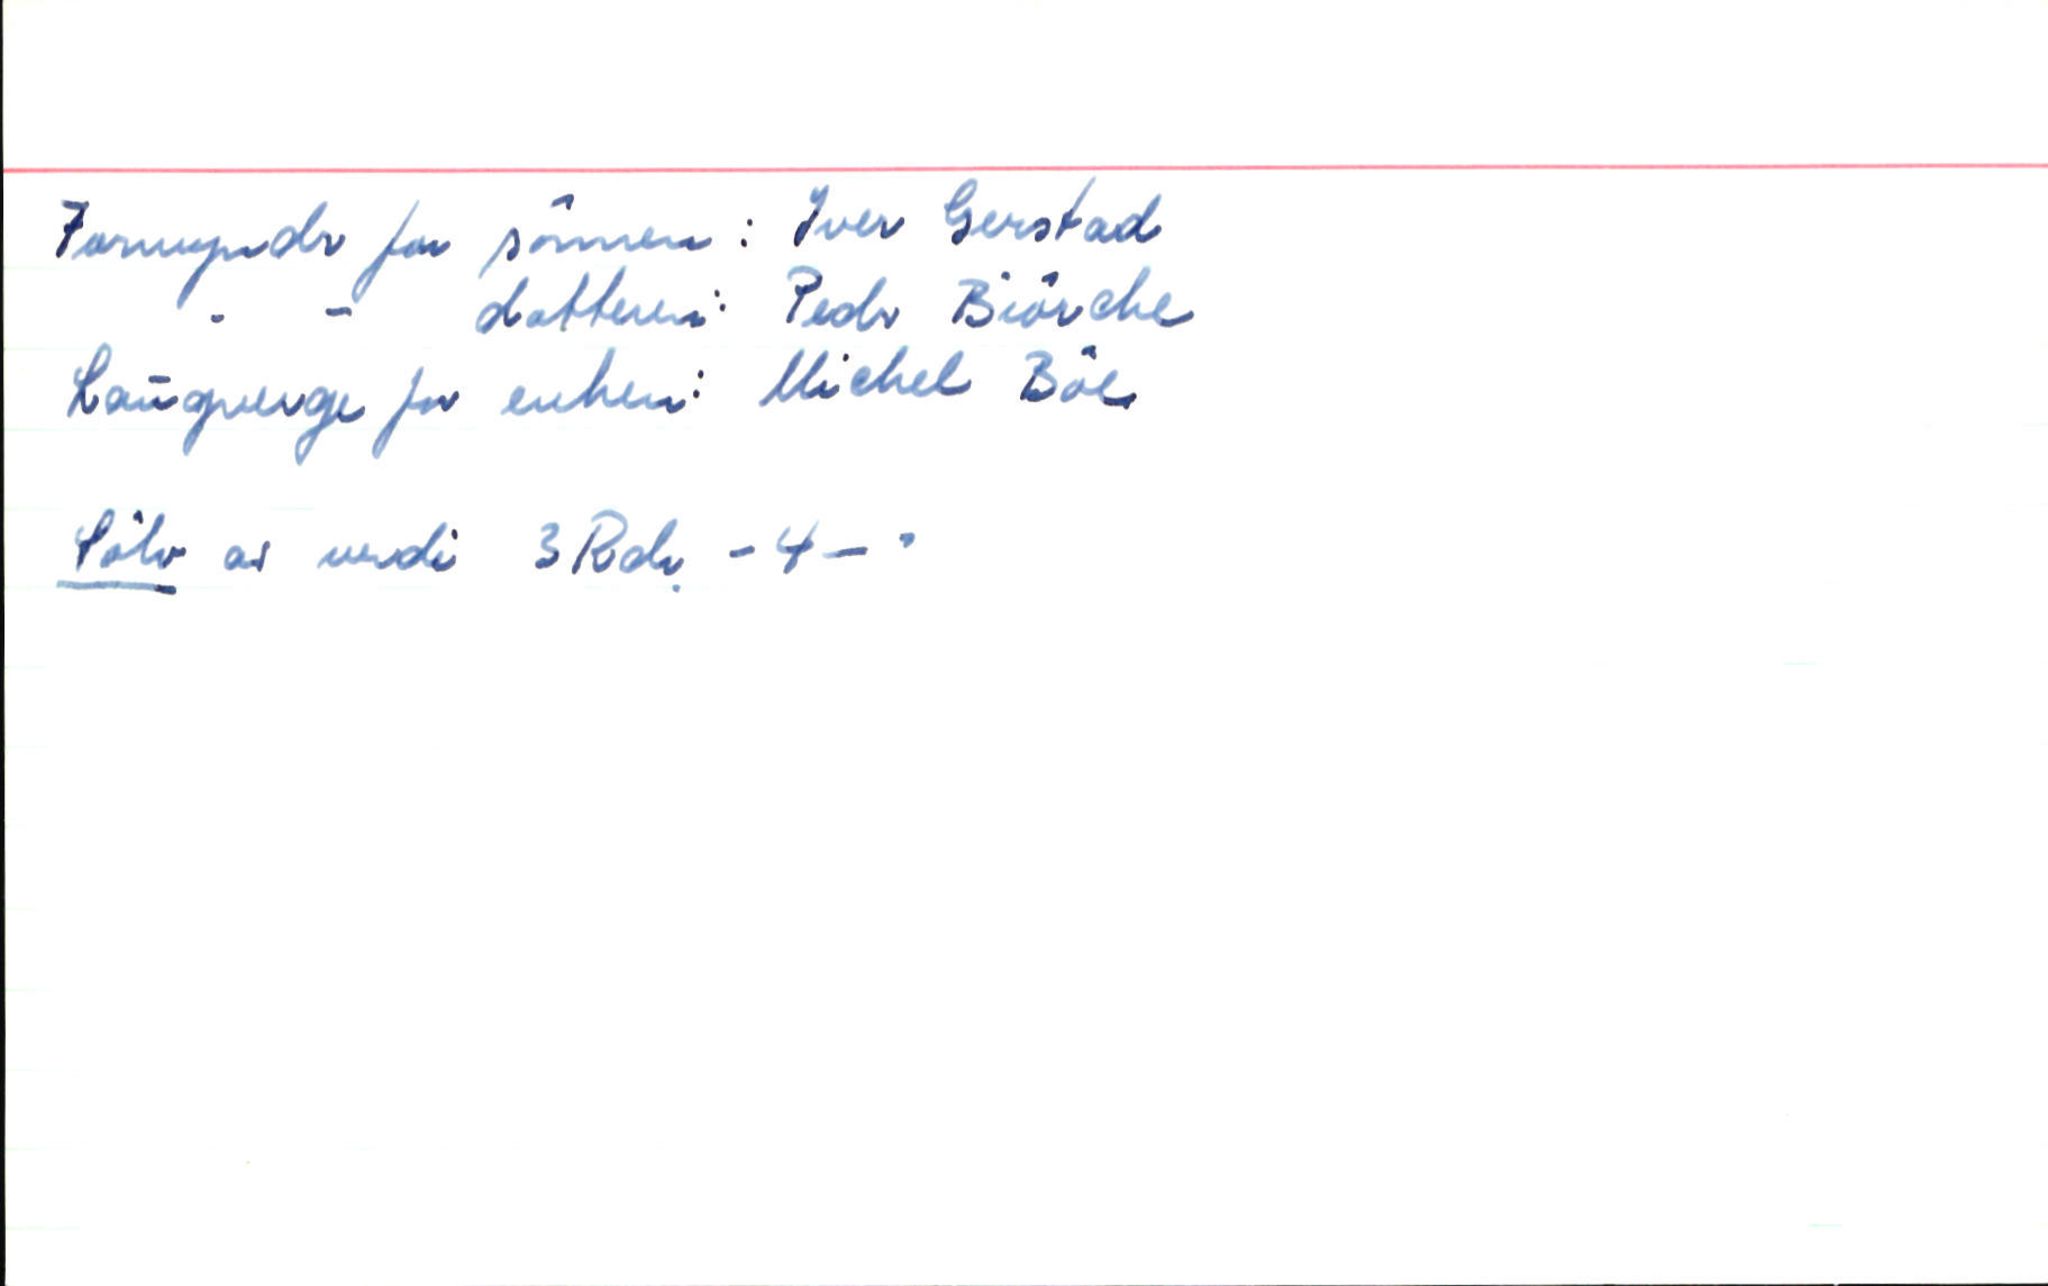 Formynder for sönnen: Iver Gerstad
- - datteren: Peder Biörche
Laugverge for enken: Michel Böe
Sölv av verdi 3 Rdr. - 4 - "